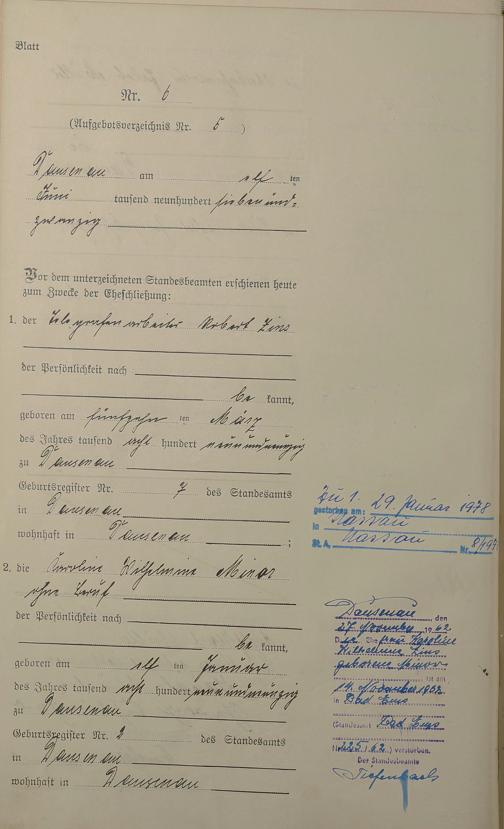 Blatt
Nr. 6
(Aufgebotsverzeichnis Nr. 5 )
Dausenau am elf ten
Juni tausend neunhundert siebenund-
zwanzig
Vor dem unterzeichneten Standesbeamten erschienen heute
zum Zwecke der Eheschließung:
1. der Telegrafenarbeiter Robert Zins
der Persönlichkeit nach
be kannt,
geboren am fünfzehn ten März
des Jahres tausend acht hundert neunundneunzig
zu Dausenau
Geburtsregister Nr. 7 des Standesamts
in Dausenau
wohnhaft in Dausenau ;
2. die Karoline Wilhelmine Minor
ohne Beruf
der Persönlichkeit nach
be kannt,
geboren am elf ten Januar
des Jahres tausend acht hundert neunundneunzig
zu Dausenau
Geburtsregister Nr. 2 des Standesamts
in Dausenau
wohnhaft in Dausenau
Zu 1. 29. Januar 1978
gestorben am:
in Nassau
St. A. Nassau Nr.
Dausenau, den
27. November 1962
Die Ehefrau Karoline
Wilhelmine Zins
geborene Minor
ist am
19. November 1962
in Bad Ems
(Standesamt Bad Ems
Nr. 225/62) verstorben.
Der Standesbeamte
Tiefenbach